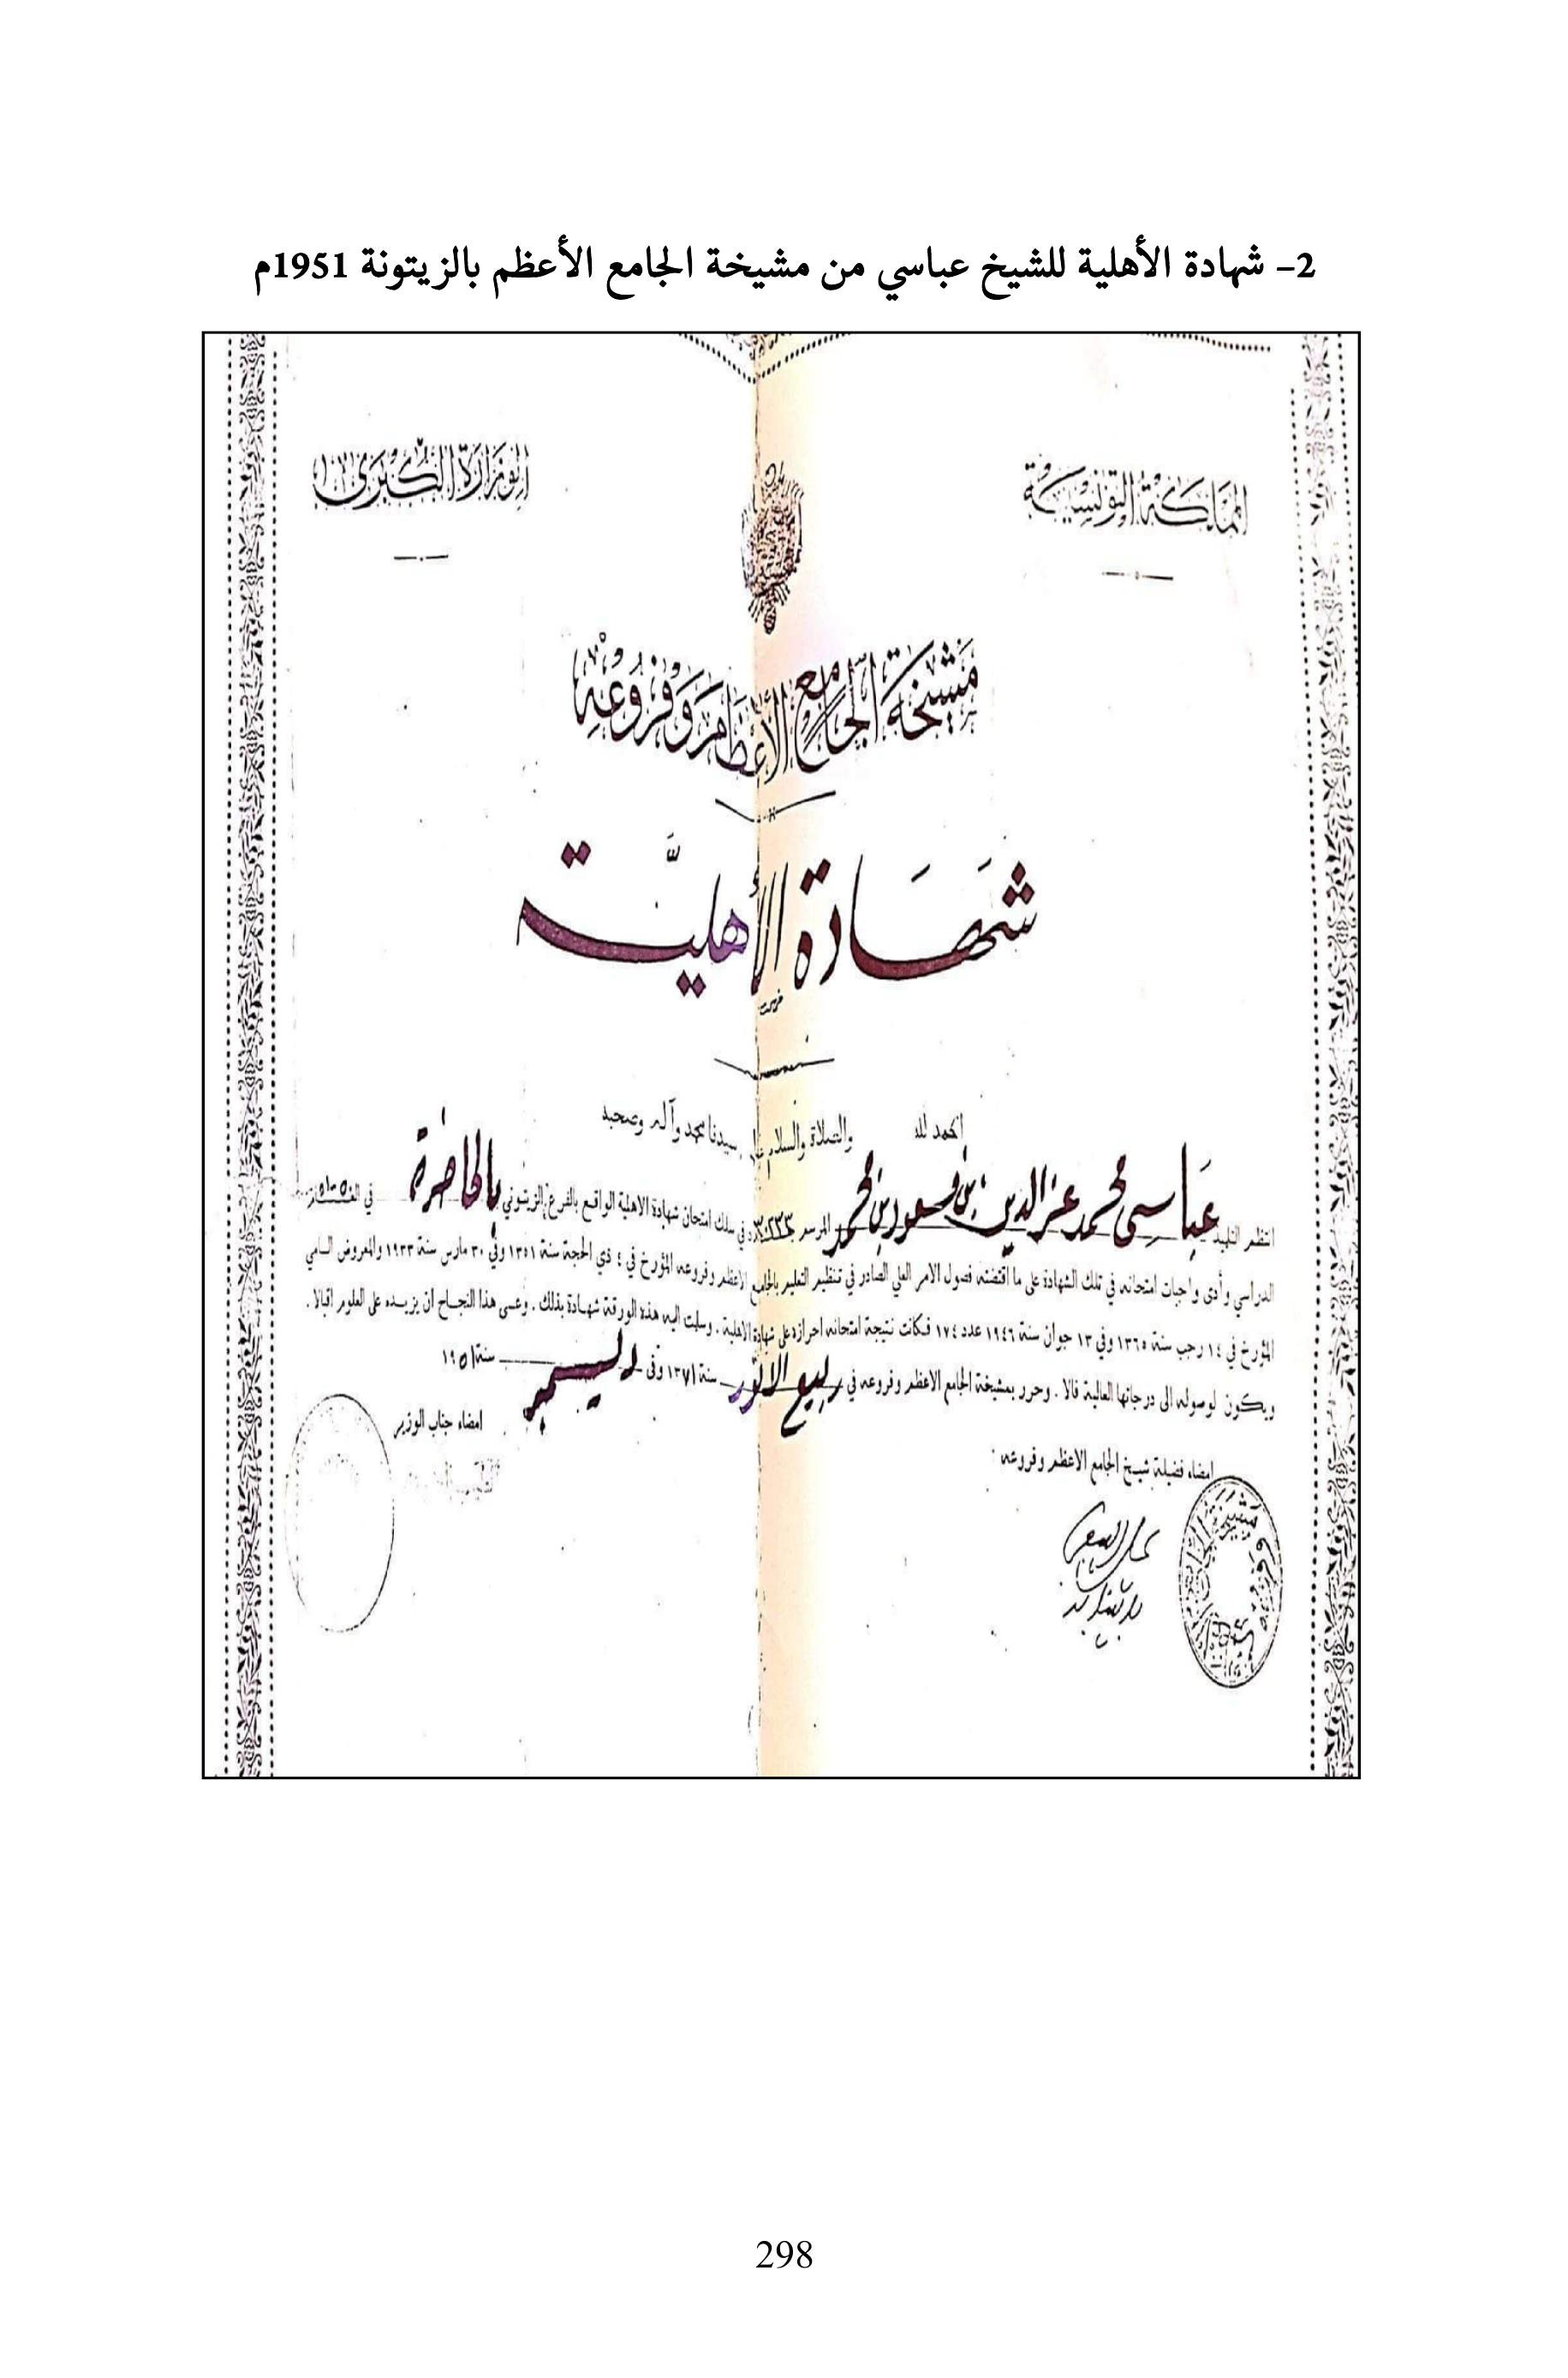 2- شهادة الأهلية للشيخ عباسي من مشيخة الجامع الأعظم بالزيتونة 1951م
المملكة التونسية
الوزارة الكبرى
مشيخة الجامع الأعظم وفروعه
شهادة الأهلية
الحمد لله والصلاة والسلام على سيدنا محمد وآله وصحبه
انتظم التلميذ عباسي محمد عز الدين بن مسعود بن محمد المرسم في سلك امتحان شهادة الاهلية الواقع بالفرع الزيتوني بالحاضرة في
الدراسي وأدى واجبات امتحانه في تلك الشهادة على ما اقتضته فصول الامر العلي الصادر في تنظيم التعليم بالجامع الاعظم وفروعه المؤرخ في ٤ ذي الحجة سنة ١٣٥١ وفي ٣٠ مارس سنة ١٩٣٣ والمعروض السامي
المؤرخ في ١٤ رجب سنة ١٣٦٥ وفي ١٣ جوان سنة ١٩٤٦ عدد ١٧٤ فكانت نتيجة امتحانه احرازه على شهادة الاهلية . وسلمت اليه هذه الورقة شهادة بذلك . وعسى هذا النجاح ان يزيده على العلوم اقبالا .
ويكون لوصوله الى درجاتها العالية فالا . وحرر بمشيخة الجامع الاعظم وفروعه في ربيع الانور سنة ١٣٧١ وفي ديسمبر سنة ١٩٥١
امضاء فضيلة شيخ الجامع الاعظم وفروعه
امضاء جناب الوزير
298